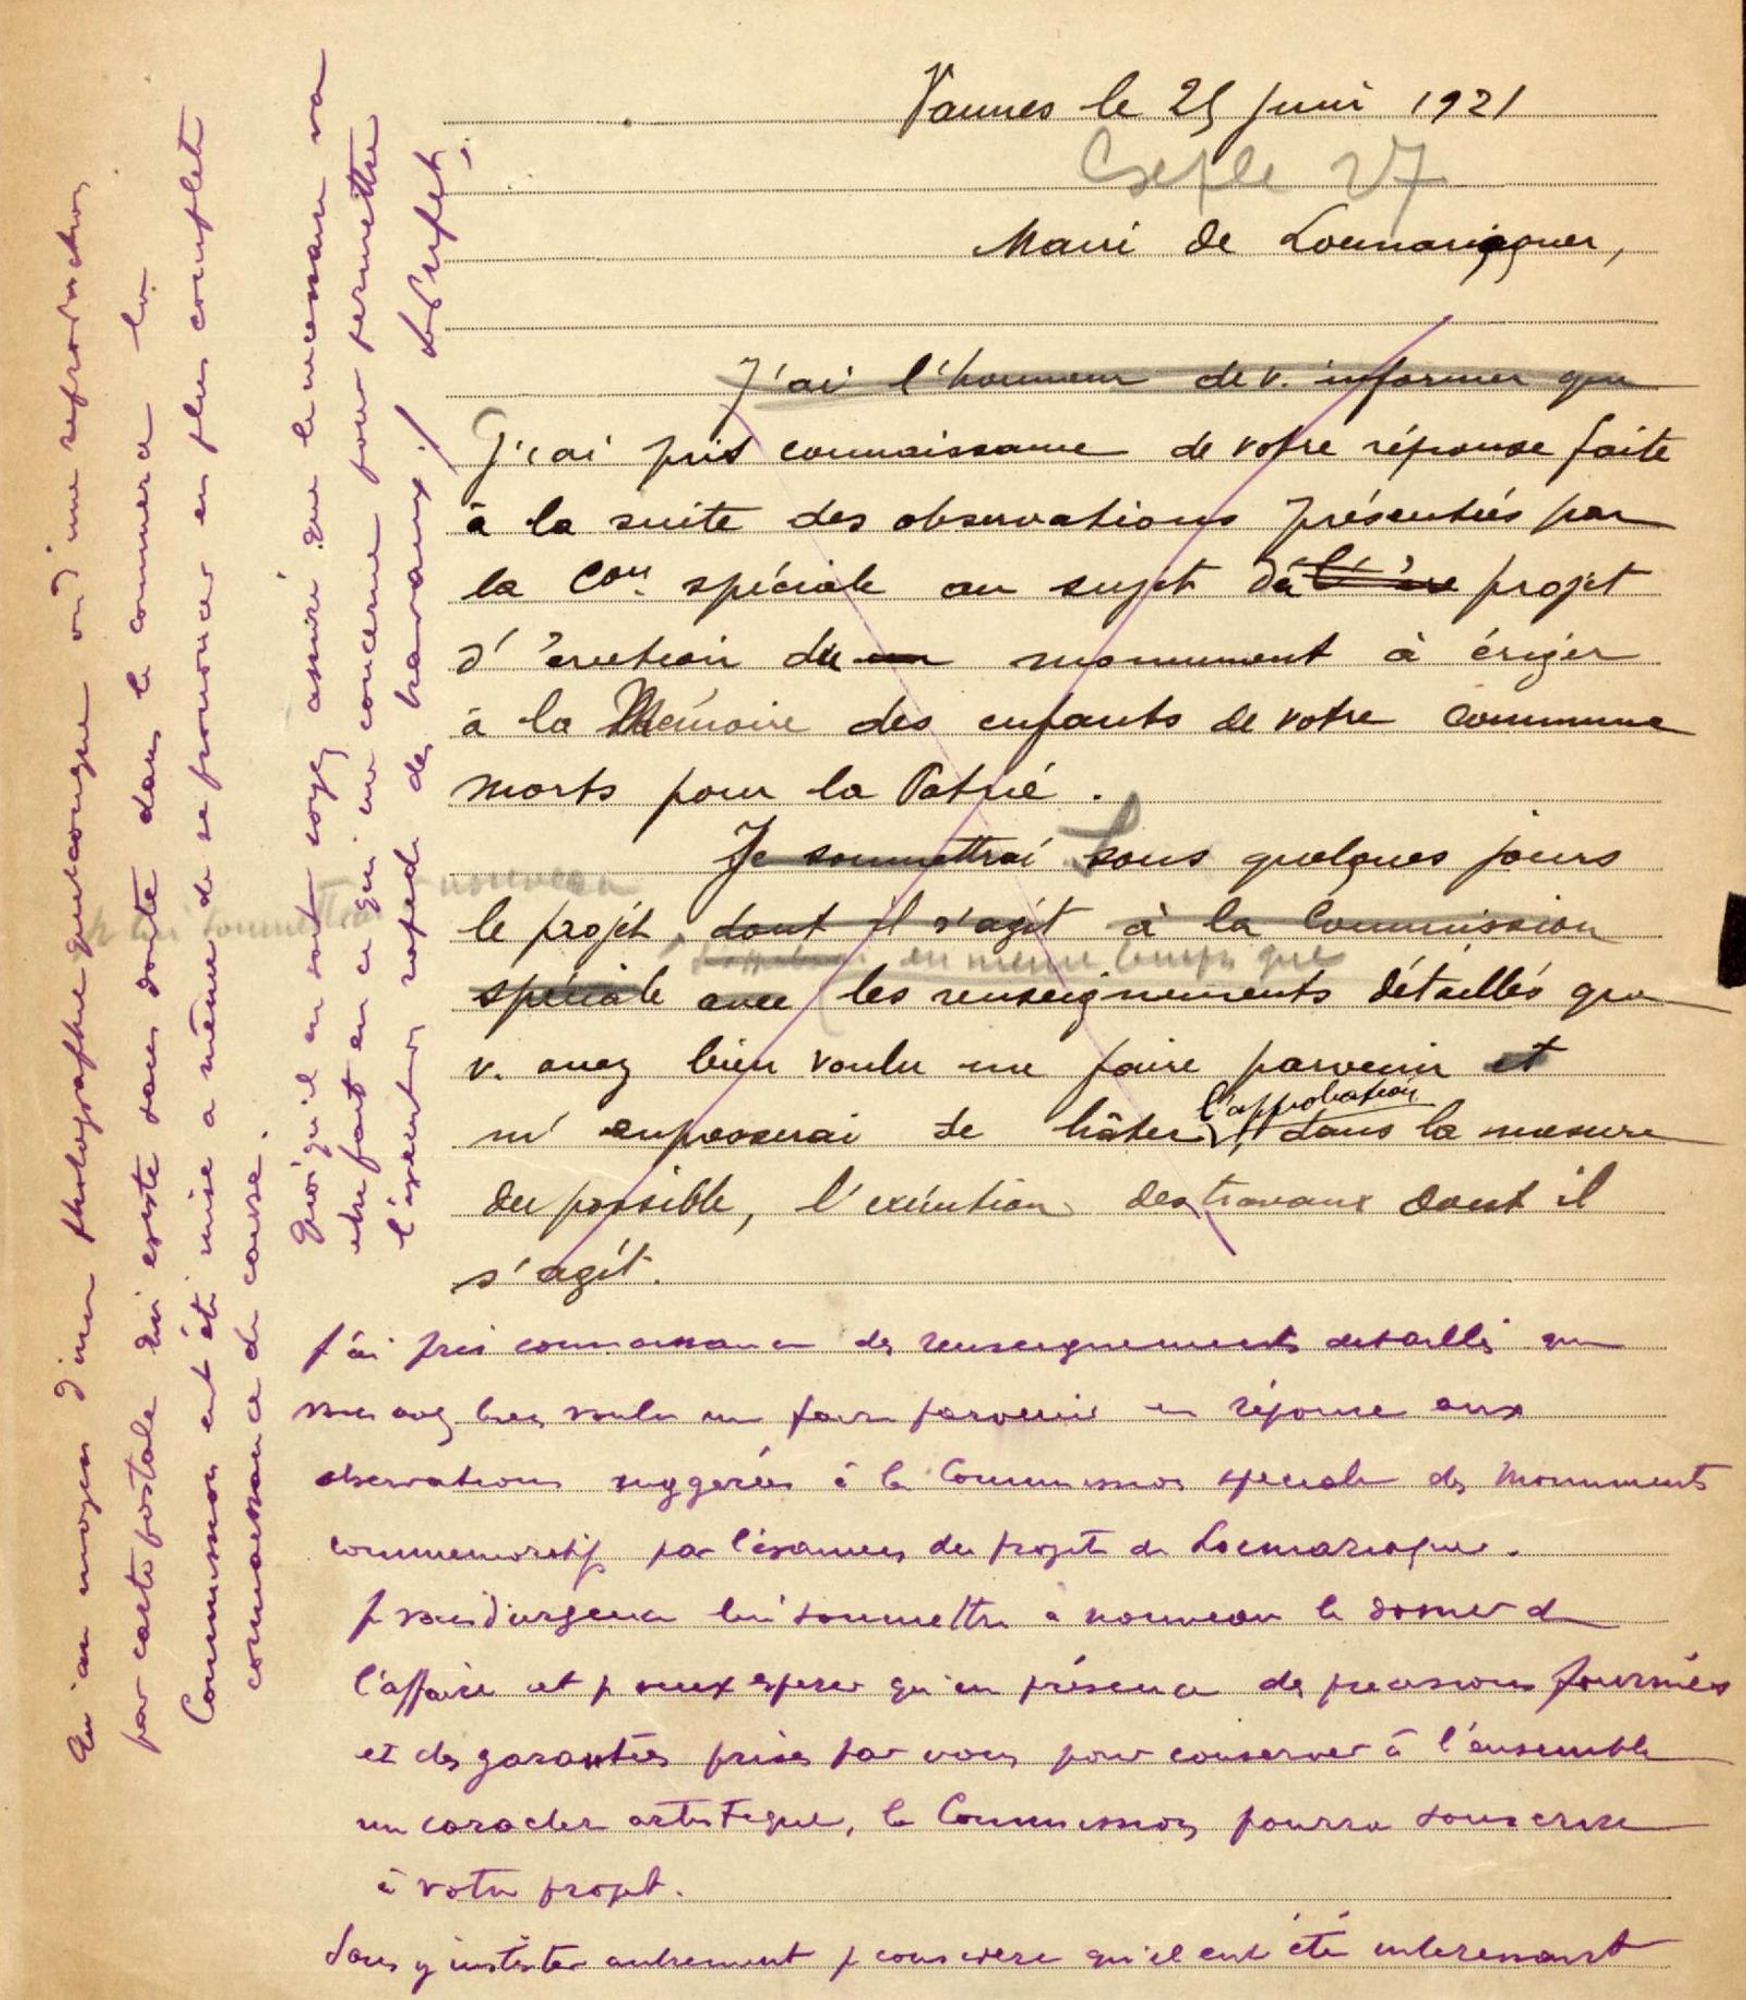 Vannes le 25 Juin 1921
27
Maire de Locmariaquer,
J'ai l'honneur de v. informer que
J'ai pris connaissance de votre réponse faite
à la suite des observations présentées par
la Con spéciale au sujet du projet
d'érection du monument à ériger
à la Mémoire des enfants de votre commune
morts pour la Patrie.
Je soumettrai Sous quelques jours
nouveau
le projet, dont il s'agit à la Commission
en même temps que
spéciale avec les renseignements détaillés que
v. avez bien voulu me faire parvenir et
l'approbation
m'empresserai de hâter, dans la mesure
du possible, l'exécution des travaux dont il
s'agit.
J'ai pris connaissance des renseignements detaillés que
vous avez bien voulu me faire parvenir en réponse aux
observations suggerées à la Commission speciale des Monuments
commemoratifs par l'examen du projet de Locmariaquer.
Je vais d'urgence lui soumettre à nouveau le dossier de
l'affaire et je veux esperer qu'en présence des precisions fournies
et des garanties prises par vous pour conserver à l'ensemble
un caractere artistique, la Commission pourra souscrire
à votre projet.
Sans y insister autrement je considere qu'il eut été interessant
qu'au moyen d'une photographie quelconque ou d'une reproduction
par carte postale qui existe sans doute dans le commerce la
Commission eut été mise a même de se prononcer en plus complete
connaissance de cause.
Quoiqu'il en soit soyez assuré que le necessaire va
etre fait en ce qui me concerne pour permettre
l'execution rapide des travaux./
Le Prefet,